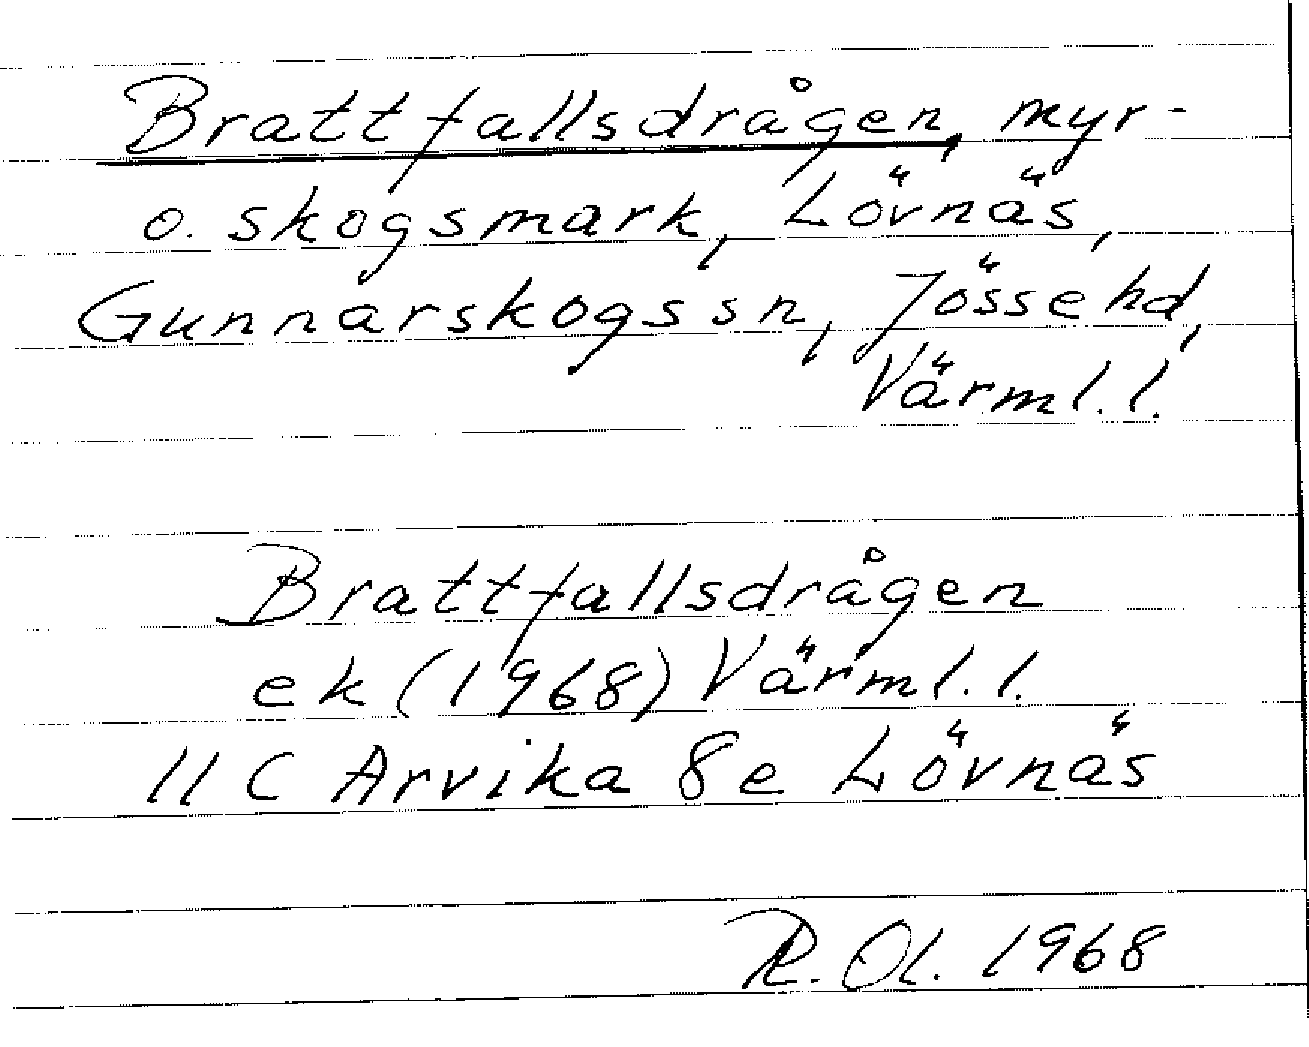 Brattfallsdrågen, myr-
o. skogsmark, Lövnäs,
Gunnarskogs sn, Jösse hd,
Värml. l.
Brattfallsdrågen
ek (1968) Värml. l.
11 C Arvika 8e Lövnäs
R. Ol. 1968